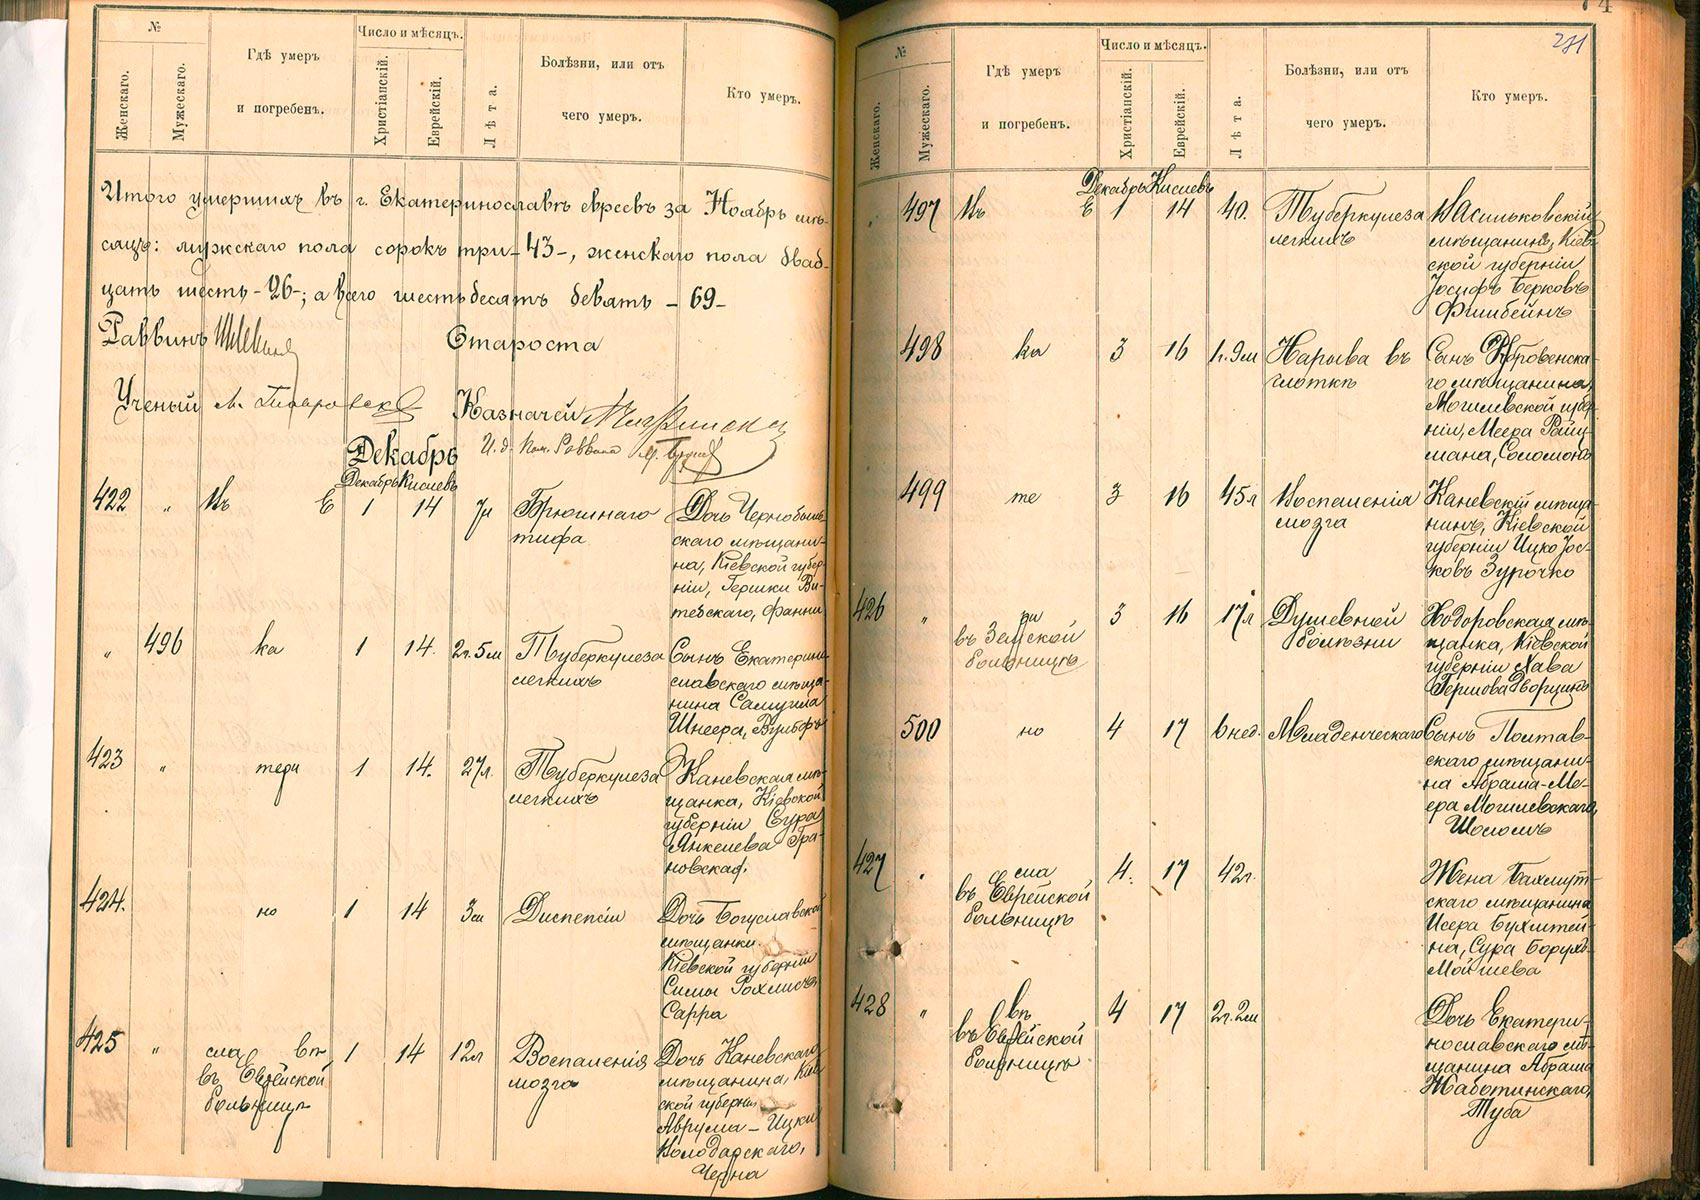 №
Число и мѣсяцъ.
Женскаго.
Мужескаго.
Гдѣ умеръ
и погребенъ.
Христіанскій.
Еврейскій.
Лѣта.
Болѣзни, или отъ
чего умеръ.
Кто умеръ.
Итого умершихъ въ г. Екатеринославѣ евреевъ за Ноябрь мѣ-
сяцъ: мужскаго пола сорокъ три -43-, женскаго пола двад-
цать шесть -26-; а всего шестьдесятъ девять - 69-
Раввинъ
Староста
Ученый
Казначей
Декабрь
И. д. Пом. Раввина
Декабрь Кислевъ
422 „ Въ Е 1 14 7л Брюшнаго
тифа
Дочь Чернобыль-
скаго мѣщани-
на, Кіевской губер-
ніи, Гершки Ви-
тебскаго, Фанни
„ 496 ка 1 14. 2г.5м Туберкулеза
легкихъ
Сынъ Екатерино-
славскаго мѣща-
нина Самуила
Шнеера, Вульфъ
423 „ тери 1 14. 27л. Туберкулеза
легкихъ
Каневская мѣ-
щанка, Кіевской
губерніи Сура
Янкелева Гра-
новская.
424. но 1 14 3м Диспепсіи
Дочь Богуславской
мѣщанки
Кіевской губерніи
Симы Рохлисъ
Сарра
425 „ сла вѣ 1 14 12л Воспаленія
въ Еврейской
больницѣ
мозга
Дочь Каневскаго
мѣщанина, Кіев
ской губерніи
Аврума-Ицки
Володарскаго,
Черна
281
№
Число и мѣсяцъ.
Женскаго.
Мужескаго.
Гдѣ умеръ
и погребенъ.
Христіанскій.
Еврейскій.
Лѣта.
Болѣзни, или отъ
чего умеръ.
Кто умеръ.
Декабрь Кислевъ
497 Въ Е 1 14 40. Туберкулеза
легкихъ
Васильковскій
мѣщанинъ, Кіев-
ской губерніи
Іосифъ Берковъ
Фишбейнъ
498 ка 3 16 1г.9м Нарыва въ
глоткѣ
Сынъ Дубровенска-
го мѣщанина,
Могилевской губер-
ніи, Меера Райц-
мана, Соломонъ
499 те 3 16 45л Воспаленія
мозга
Каневскій мѣща-
нинъ, Кіевской
губерніи Ицко Іос-
ковъ Зурочко
426 „ ри 3 16 17л Душевной
въ Земской
больницѣ
болѣзни
Ходоровская мѣ-
щанка, Кіевской
губерніи Хава
Гершова Дворцинъ
500 но 4 17 6 нед. Младенческаго
Сынъ Полтав-
скаго мѣщани-
на Абрама-Ме-
ера Могилевскаго,
Шоломъ
427 сла 4. 17 42г.
въ Еврейской
больницѣ
Жена Бахмут-
скаго мѣщанина
Исера Бухштей-
на, Сура Борухъ-
Мойшева
428 „ вѣ 4 17 2г.2м
въ Еврейской
больницѣ
Дочь Екатери-
нославскаго мѣ-
щанина Абрама
Жаботинскаго,
Туба